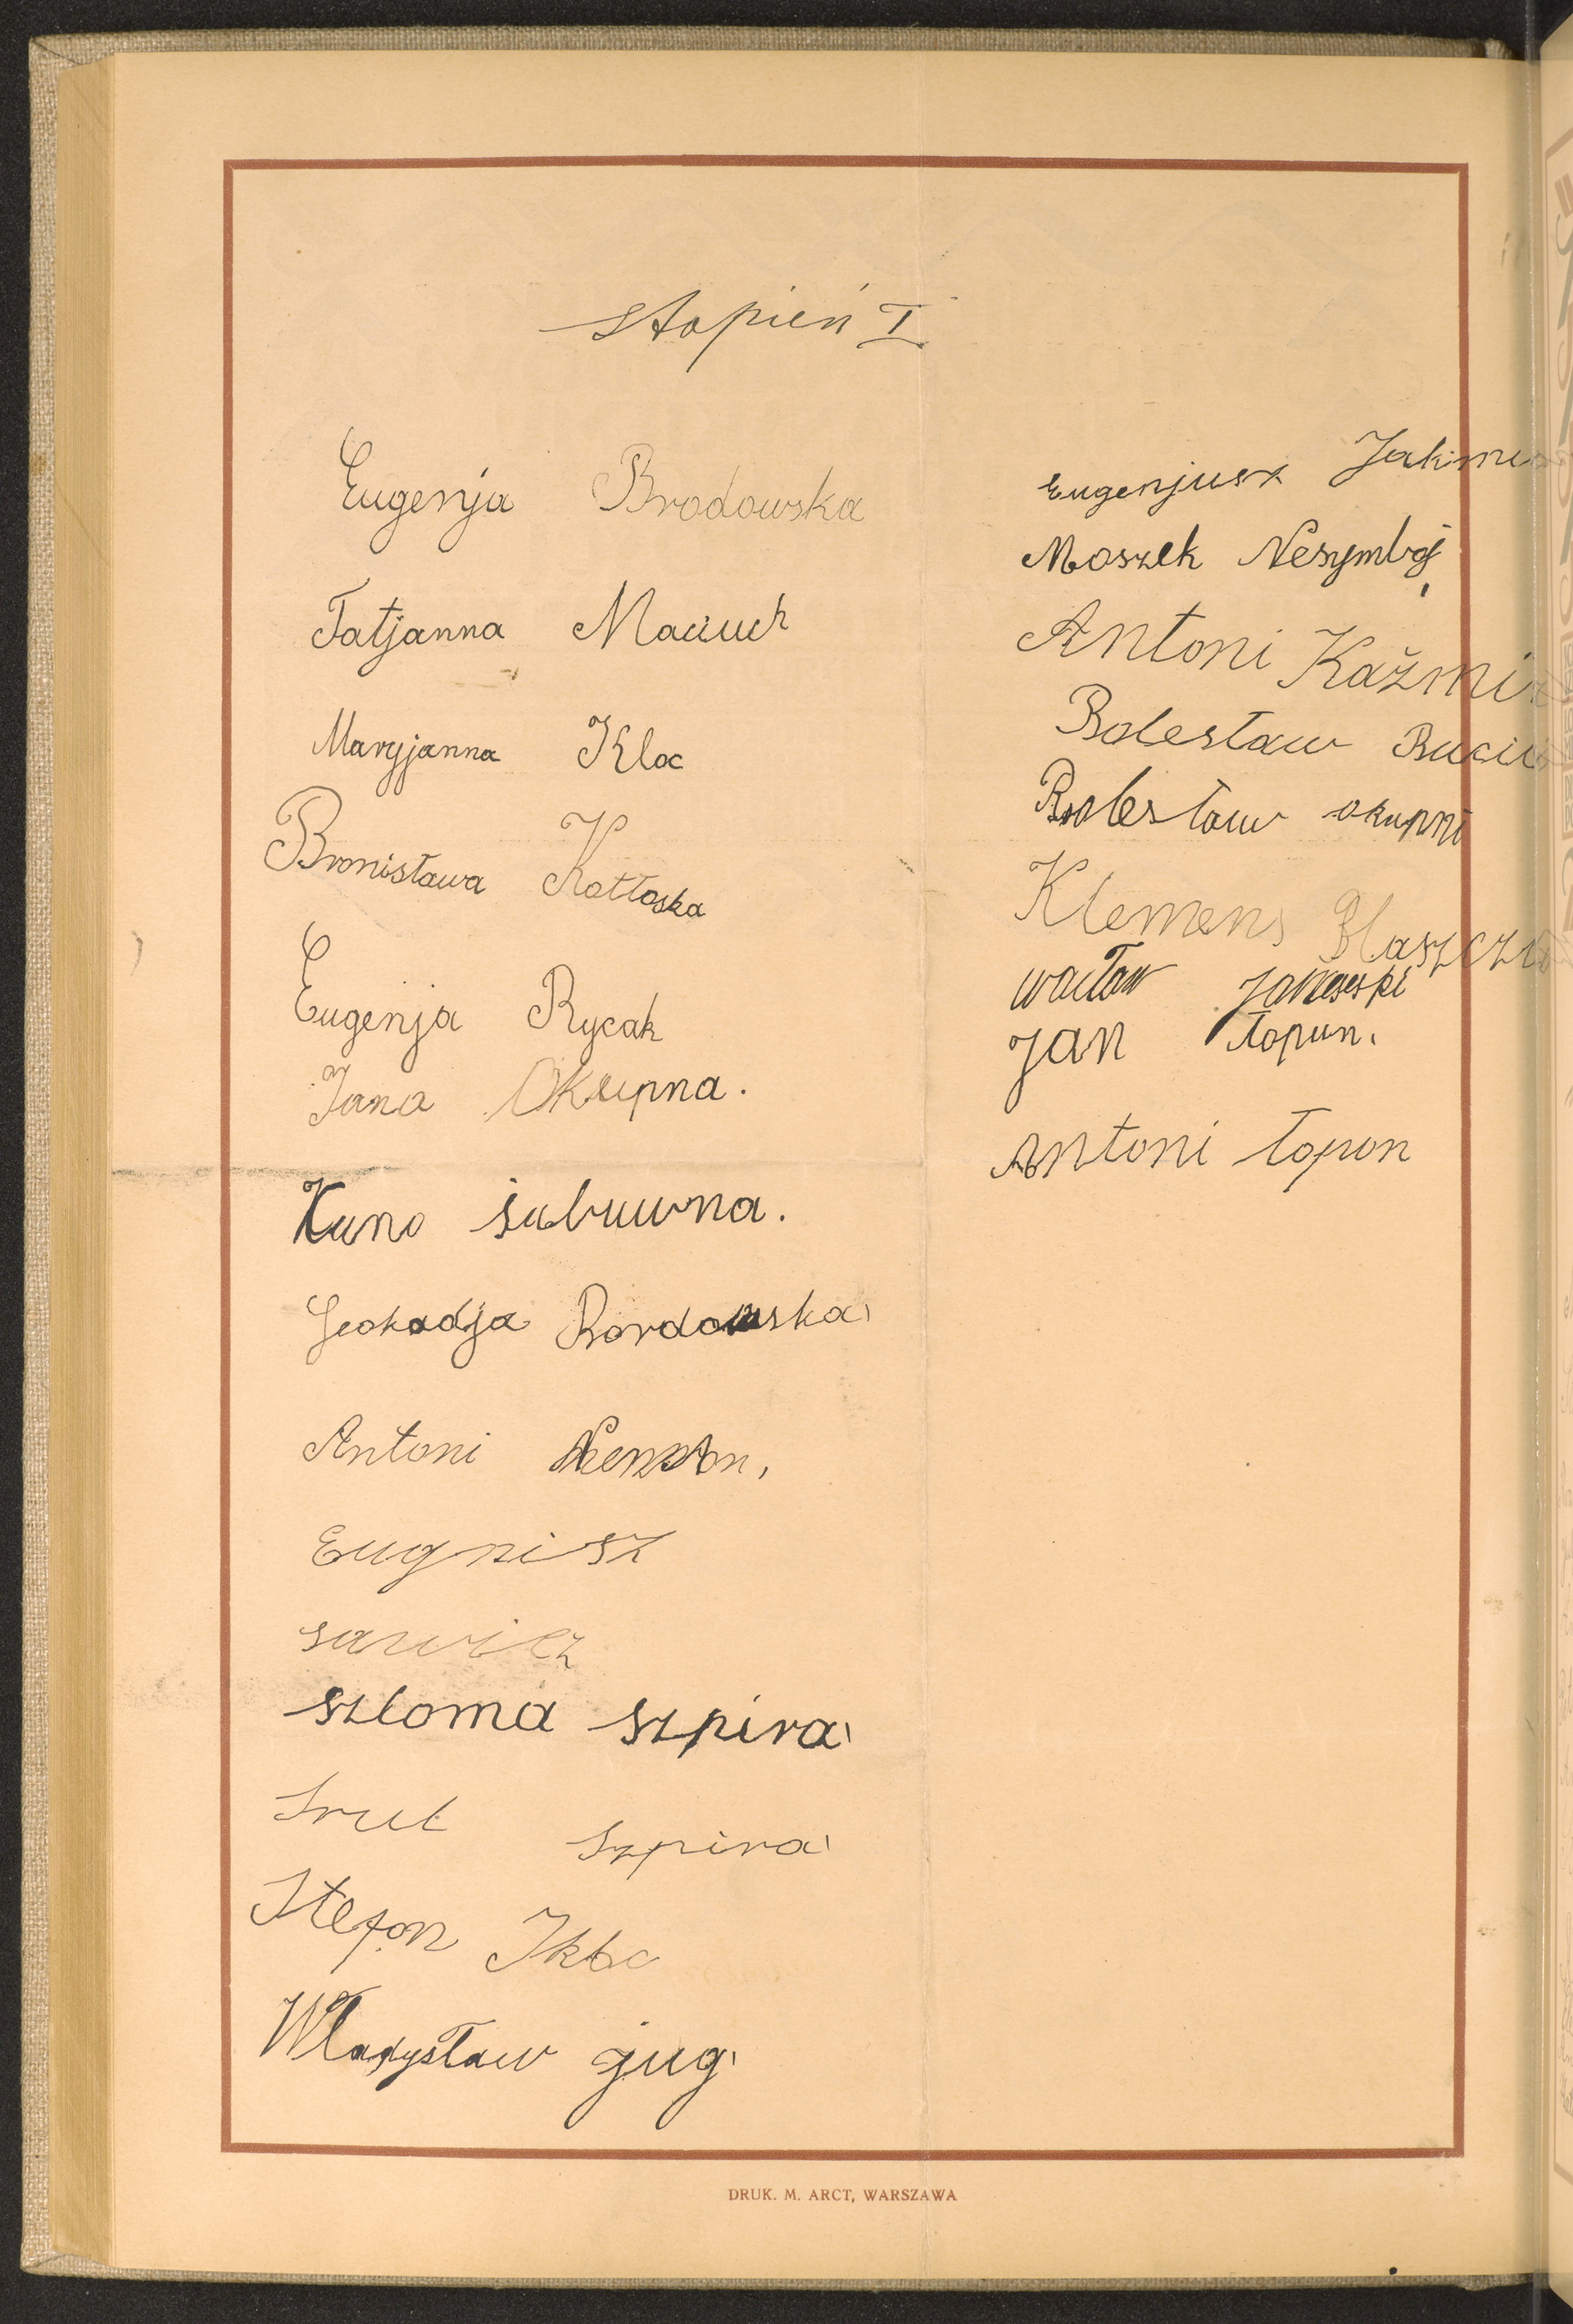 stopień I
Eugenja Brodowska
Tatjanna Maciuch
Maryjanna Kloc
Bronisława Kotłoska
Eugenja Rycak
Jana Okupna.
Leokadja Bordowska
Antoni
Eugnisz
sawicz
szloma szpira
Srul Szpira
Stefon
Władysław jug
Eugenjusz
Moszek Nesymboj
Antoni
Bolesław
Bolesław okupni
Klemens
wacław
Jan łopun.
Antoni łopon
DRUK. M. ARCT, WARSZAWA